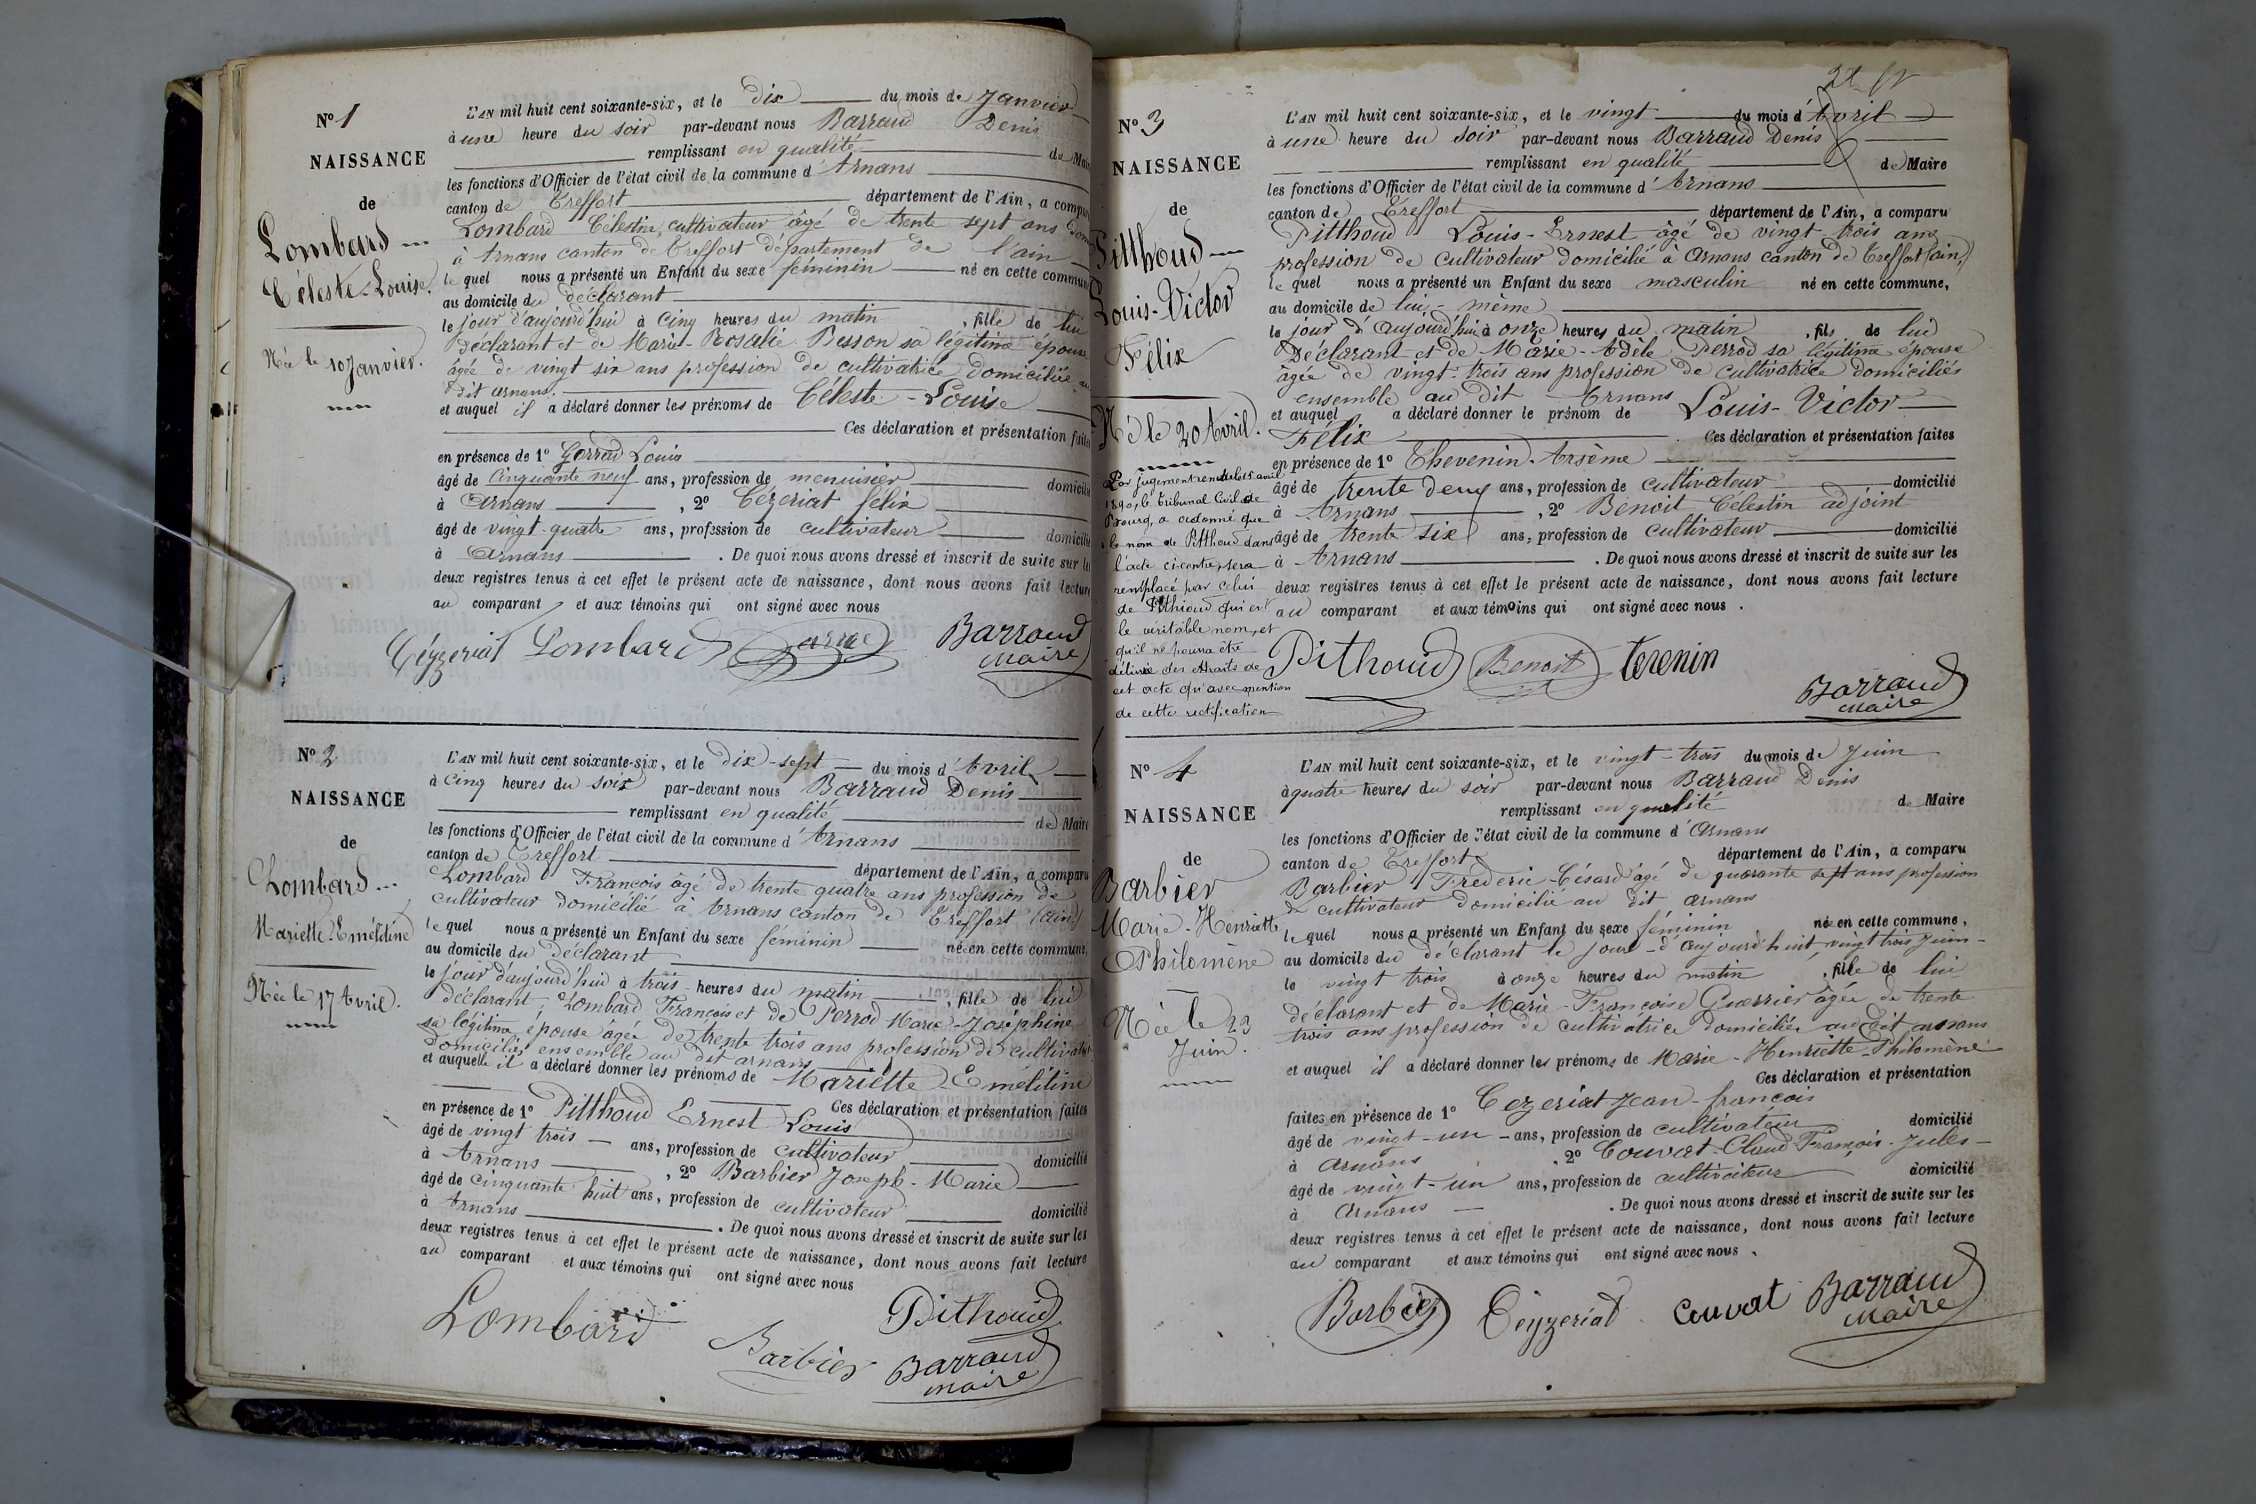 N° 1
NAISSANCE
de
Lombard
Céleste-Louise.
Née le 10 Janvier.
L'AN mil huit cent soixante-six, et le dix du mois de Janvier
à une heure du soir par-devant nous Barraud Denis
remplissant en qualité de Maire
les fonctions d'Officier de l'état civil de la commune d'Arnans
canton de Treffort département de l'Ain, a comparu
Lombard Célestin, cultivateur âgé de trente sept ans
à Arnans canton de Treffort département de l'ain
le quel nous a présenté un Enfant du sexe féminin né en cette commune
au domicile du déclarant
le jour d'aujourd'hui à cinq heures du matin, fille de lui
déclarant et de Marie-Rosalie Besson sa légitime épouse
âgée de vingt six ans profession de cultivatrice domiciliée
dit arnans.
et auquel il a déclaré donner les prénoms de Céleste-Louise
Ces déclaration et présentation faites
en présence de 1° Louis
âgé de cinquante neuf ans, profession de menuisier domicilié
à Arnans, 2° Cézeriat félix
âgé de vingt-quatre ans, profession de cultivateur domicilié
à Arnans. De quoi nous avons dressé et inscrit de suite sur les
deux registres tenus à cet effet le présent acte de naissance, dont nous avons fait lecture
au comparant et aux témoins qui ont signé avec nous
Céyzeriat Lombard Barraud
maire
N° 2
NAISSANCE
de
Lombard
Mariette-Eméltine
Née le 17 Avril.
L'AN mil huit cent soixante-six, et le dix-sept du mois d'Avril
à cinq heures du soir par-devant nous Barraud Denis
remplissant en qualité de Maire
les fonctions d'Officier de l'état civil de la commune d'Arnans
canton de Treffort département de l'Ain, a comparu
Lombard François âgé de trente quatre ans profession de
cultivateur domicilié à Arnans canton de Treffort (ain)
le quel nous a présenté un Enfant du sexe féminin né en cette commune,
au domicile du déclarant
le jour d'aujourd'hui à trois heures du matin, fille de lui
déclarant, Lombard François et de Perrod Marie-Joséphine
sa légitime épouse âgée de trente trois ans profession de
domiciliés ensemble au dit arnans
et auquelle il a déclaré donner les prénoms de Mariette-Eméltine
Ces déclaration et présentation faites
en présence de 1° Pitthoud Ernest Louis
âgé de vingt trois ans, profession de cultivateur domicilié
à Arnans, 2° Barbier Joseph-Marie
âgé de cinquante huit ans, profession de cultivateur domicilié
à Arnans. De quoi nous avons dressé et inscrit de suite sur les
deux registres tenus à cet effet le présent acte de naissance, dont nous avons fait lecture
au comparant et aux témoins qui ont signé avec nous
Lombard Pithoud
Barbier Barraud
maire
N° 3
NAISSANCE
de
Pitthoud
Louis-Victor
Félix
Né le 20 Avril.
Par jugement rendu le 15 avril
1890, le tribunal Civil de
Bourg, a ordonné que
le nom de Pitthoud dans
l'acte ci-contre, sera
remplacé par celui
de Pithioud qui est
le véritable nom, et
qu'il ne pourra être
délivré des extraits de
cet acte qu'avec mention
de cette rectification
L'AN mil huit cent soixante-six, et le vingt du mois d'Avril
à une heure du soir par-devant nous Barraud Denis
remplissant en qualité de Maire
les fonctions d'Officier de l'état civil de la commune d'Arnans
canton de Treffort département de l'Ain, a comparu
Pitthoud Louis-Ernest âgé de vingt-trois ans
profession de cultivateur domicilié à Arnans canton de Treffort (ain)
le quel nous a présenté un Enfant du sexe masculin né en cette commune,
au domicile de lui-même
le jour d'aujourd'hui à onze heures du matin, fils de lui
déclarant et de Marie-Adèle Perrod sa légitime épouse
âgée de vingt-trois ans profession de cultivatrice domiciliés
ensemble au dit Arnans
et auquel a déclaré donner le prénom de Louis-Victor
Félix Ces déclaration et présentation faites
en présence de 1° Thevenin Arsème
âgé de trente deux ans, profession de cultivateur domicilié
à Arnans, 2° Benoit Célestin adjoint
âgé de trente six ans, profession de cultivateur domicilié
à Arnans. De quoi nous avons dressé et inscrit de suite sur les
deux registres tenus à cet effet le présent acte de naissance, dont nous avons fait lecture
au comparant et aux témoins qui ont signé avec nous.
Pithoud Benoit terenin
Barraud
maire
N° 4
NAISSANCE
de
Barbier
Marie-Henriette
Philomène
Née le 23
Juin.
L'AN mil huit cent soixante-six, et le vingt-trois du mois de Juin
à quatre heures du soir par-devant nous Barraud Denis
remplissant en qualité de Maire
les fonctions d'Officier de l'état civil de la commune d'Arnans
canton de Treffort département de l'Ain, a comparu
Barbier Frederic-Césard âgé de quarante sept ans profession
de cultivateur domicilié au dit arnans
le quel nous a présenté un Enfant du sexe féminin né en cette commune,
au domicile du déclarant le jour d'aujourd'huit vingt trois juin
le vingt trois à onze heures du matin, fille de lui
déclarant et de Marie-Françoise Guerrier âgée de trente
trois ans profession de cultivatrice domiciliée au dit arnans
et auquel il a déclaré donner les prénoms de Marie-Henriette-Philomène
Ces déclaration et présentation
faites en présence de 1° Cezeriat Jean-françois
âgé de vingt-un ans, profession de cultivateur domicilié
à Arnans, 2° Couvat-Claud François-Jules
âgé de vingt-un ans, profession de cultivateur domicilié
à Arnans. De quoi nous avons dressé et inscrit de suite sur les
deux registres tenus à cet effet le présent acte de naissance, dont nous avons fait lecture
au comparant et aux témoins qui ont signé avec nous.
Barbier Céyzeriat couvat Barraud
maire